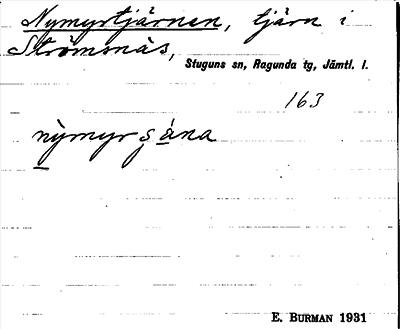 Nymyrtjärnen, tjärn i
Strömsnäs,
Stuguns sn, Ragunda tg, Jämtl. l.
163
nỳmyrʂȧna
E. BURMAN 1931